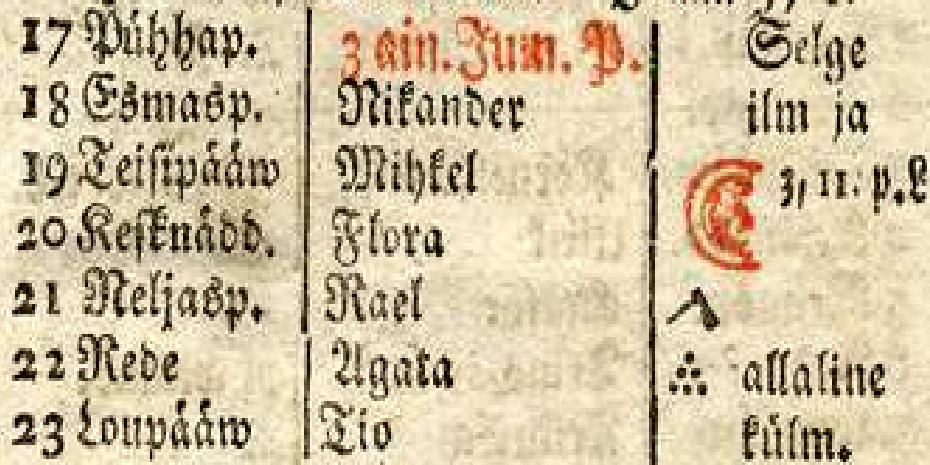 17 Pühhap. 3 ain. Jum. P. Selge
18 Esmasp. Nikander ilm ja
19 Teisipääw Mihkel 3, 11. p. L
20 Kesknädd. Flora
21 Neljasp. Rael
22 Rede Agata allaline
23 Loupääw Tio külm.